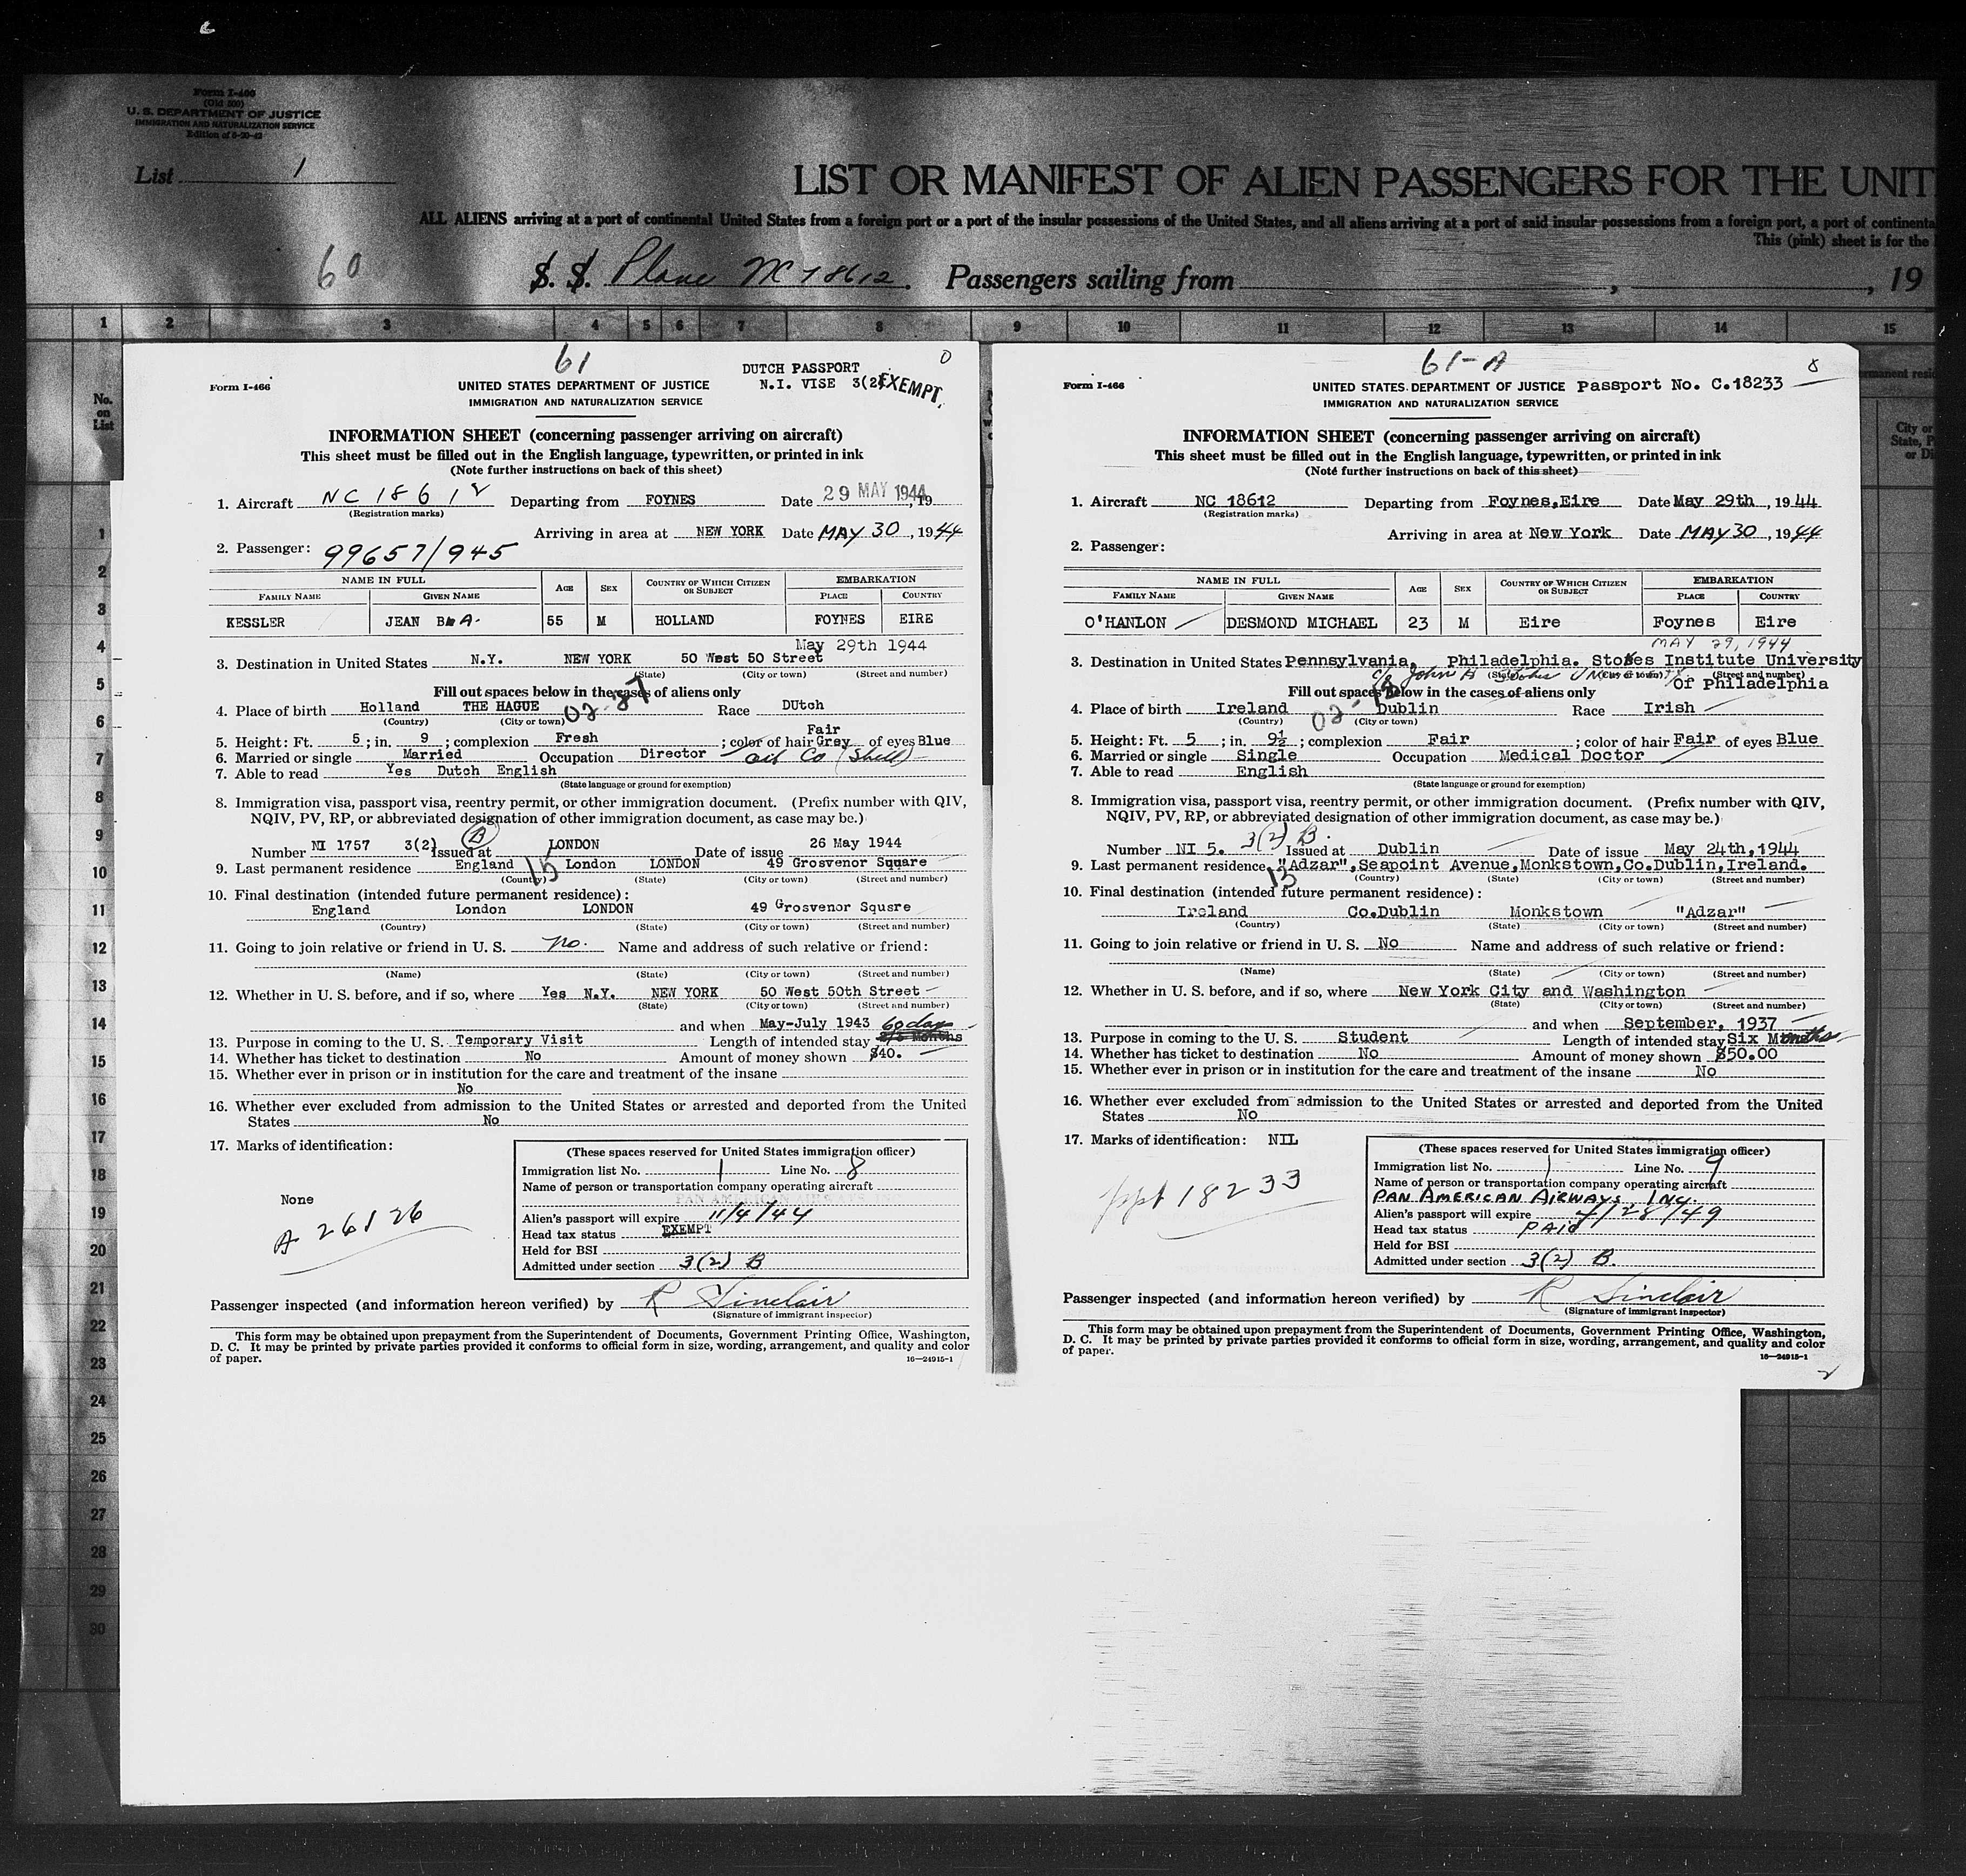 Form I-466
(Old 500)
U. S. DEPARTMENT OF JUSTICE
IMMIGRATION AND NATURALIZATION SERVICE
List 1
LIST OR MANIFEST OF ALIEN PASSENGERS FOR THE UNIT
ALL ALIENS arriving at a port of continental United States from a foreign port or a port of the insular possessions of the United States, and all aliens arriving at a port of said insular possessions from a foreign port, a port of continenta
This (pink) sheet is for the
60 S. S. Plane NC 18612. Passengers sailing from , , 19
1 2 3 4 5 6 7 8 9 10 11 12 13 14 15
No.
on
List
City or
State, P
or Di
1
2
3
4
5
6
7
8
9
10
11
12
13
14
15
16
17
18
19
20
21
22
23
24
25
26
27
28
29
30
61
DUTCH PASSPORT
N.I. VISE 3(2) EXEMPT.
0
Form I-466
UNITED STATES DEPARTMENT OF JUSTICE
IMMIGRATION AND NATURALIZATION SERVICE
INFORMATION SHEET (concerning passenger arriving on aircraft)
This sheet must be filled out in the English language, typewritten, or printed in ink
(Note further instructions on back of this sheet)
1. Aircraft NC 18612 Departing from FOYNES Date 29 MAY 1944, 19
(Registration marks)
Arriving in area at NEW YORK Date MAY 30, 1944
2. Passenger: 99657/945
NAME IN FULL AGE SEX COUNTRY OF WHICH CITIZEN OR SUBJECT EMBARKATION
FAMILY NAME GIVEN NAME PLACE COUNTRY
KESSLER JEAN B. A. 55 M HOLLAND FOYNES EIRE
May 29th 1944
3. Destination in United States N.Y. NEW YORK 50 West 50 Street
(State) (City or town) (Street and number)
Fill out spaces below in the cases of aliens only
02-87
4. Place of birth Holland THE HAGUE Race DUtch
(Country) (City or town)
Fair
5. Height: Ft. 5; in. 9; complexion Fresh; color of hair Grey of eyes Blue
6. Married or single Married Occupation Director Oil Co (Shell)
7. Able to read Yes Dutch English
(State language or ground for exemption)
8. Immigration visa, passport visa, reentry permit, or other immigration document. (Prefix number with QIV,
NQIV, PV, RP, or abbreviated designation of other immigration document, as case may be.)
Number NI 1757 3(2) B Issued at LONDON Date of issue 26 May 1944
9. Last permanent residence England London LONDON 49 Grosvenor Square
(Country) (State) (City or town) (Street and number)
15
10. Final destination (intended future permanent residence):
England London LONDON 49 Grosvenor Squsre
(Country) (State) (City or town) (Street and number)
11. Going to join relative or friend in U. S. no. Name and address of such relative or friend:
(Name) (State) (City or town) (Street and number)
12. Whether in U. S. before, and if so, where Yes N.Y. NEW YORK 50 West 50th Street
(State) (City or town) (Street and number)
and when May-July 1943 60 days
13. Purpose in coming to the U. S. Temporary Visit Length of intended stay Months
14. Whether has ticket to destination No Amount of money shown $40.
15. Whether ever in prison or in institution for the care and treatment of the insane
No
16. Whether ever excluded from admission to the United States or arrested and deported from the United
States No
17. Marks of identification:
None
A 26126
(These spaces reserved for United States immigration officer)
Immigration list No. 1 Line No. 8
Name of person or transportation company operating aircraft
PAN AMERICAN AIRWAYS, INC.
Alien's passport will expire 11/4/44
Head tax status EXEMPT
Held for BSI
Admitted under section 3(2) B
Passenger inspected (and information hereon verified) by R Sinclair
(Signature of immigrant inspector)
This form may be obtained upon prepayment from the Superintendent of Documents, Government Printing Office, Washington,
D. C. It may be printed by private parties provided it conforms to official form in size, wording, arrangement, and quality and color
of paper.
16—24915-1
61-A
8
Form I-466
UNITED STATES DEPARTMENT OF JUSTICE Passport No. C.18233
IMMIGRATION AND NATURALIZATION SERVICE
INFORMATION SHEET (concerning passenger arriving on aircraft)
This sheet must be filled out in the English language, typewritten, or printed in ink
(Note further instructions on back of this sheet)
1. Aircraft NC 18612 Departing from Foynes,Eire Date May 29th, 1944
(Registration marks)
Arriving in area at New York Date MAY 30, 1944
2. Passenger:
NAME IN FULL AGE SEX COUNTRY OF WHICH CITIZEN OR SUBJECT EMBARKATION
FAMILY NAME GIVEN NAME PLACE COUNTRY
O'HANLON DESMOND MICHAEL 23 M Eire Foynes Eire
MAY 29, 1944
3. Destination in United States Pennsylvania, Philadelphia. Stokes Institute University
(State) (City or town) (Street and number)
c/o John B Stokes
of Philadelphia
Fill out spaces below in the cases of aliens only
4. Place of birth Ireland Dublin Race Irish
(Country) (City or town)
5. Height: Ft. 5; in. 9½; complexion Fair; color of hair Fair of eyes Blue
6. Married or single Single Occupation Medical Doctor
7. Able to read English
(State language or ground for exemption)
8. Immigration visa, passport visa, reentry permit, or other immigration document. (Prefix number with QIV,
NQIV, PV, RP, or abbreviated designation of other immigration document, as case may be.)
Number NI 5. 3(2) B. Issued at Dublin Date of issue May 24th,1944
9. Last permanent residence "Adzar",Seapoint Avenue,Monkstown,Co.Dublin,Ireland.
(Country) (State) (City or town) (Street and number)
13
10. Final destination (intended future permanent residence):
Ireland Co.Dublin Monkstown "Adzar"
(Country) (State) (City or town) (Street and number)
11. Going to join relative or friend in U. S. No Name and address of such relative or friend:
(Name) (State) (City or town) (Street and number)
12. Whether in U. S. before, and if so, where New York City and Washington
(State) (City or town) (Street and number)
and when September, 1937
13. Purpose in coming to the U. S. Student Length of intended stay Six Months
14. Whether has ticket to destination No Amount of money shown $50.00
15. Whether ever in prison or in institution for the care and treatment of the insane No
16. Whether ever excluded from admission to the United States or arrested and deported from the United
States No
17. Marks of identification: NIL
ppt 18233
(These spaces reserved for United States immigration officer)
Immigration list No. 1 Line No. 9
Name of person or transportation company operating aircraft
PAN AMERICAN AIRWAYS INC.
Alien's passport will expire 4/28/49
Head tax status PAID
Held for BSI
Admitted under section 3(2) B.
Passenger inspected (and information hereon verified) by R Sinclair
(Signature of immigrant inspector)
This form may be obtained upon prepayment from the Superintendent of Documents, Government Printing Office, Washington,
D. C. It may be printed by private parties provided it conforms to official form in size, wording, arrangement, and quality and color
of paper.
16—24915-1